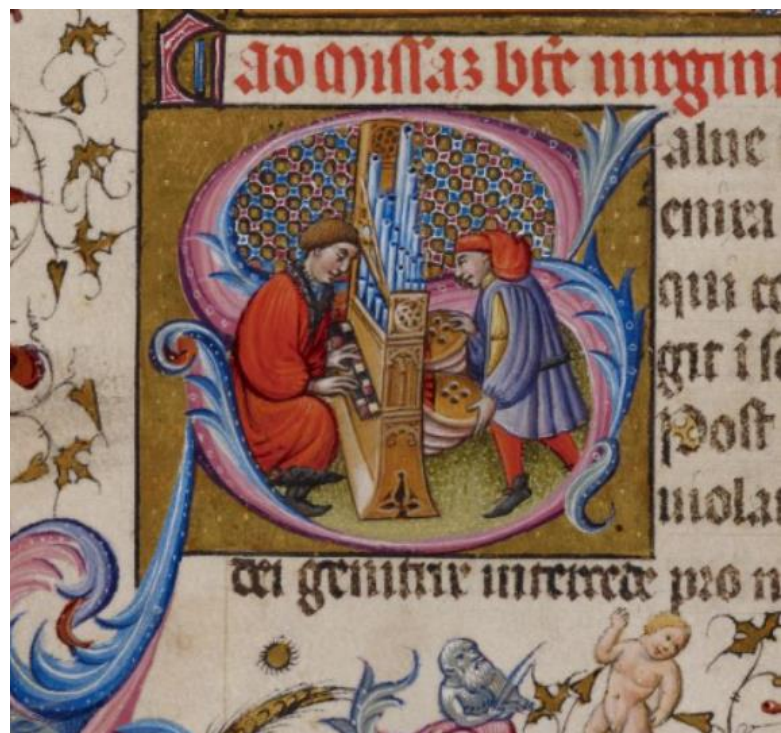 ad missaz bte uirgini
Salue
enixa
qui ce
git i se
Post
uiola
dei genitrix intercede pro n